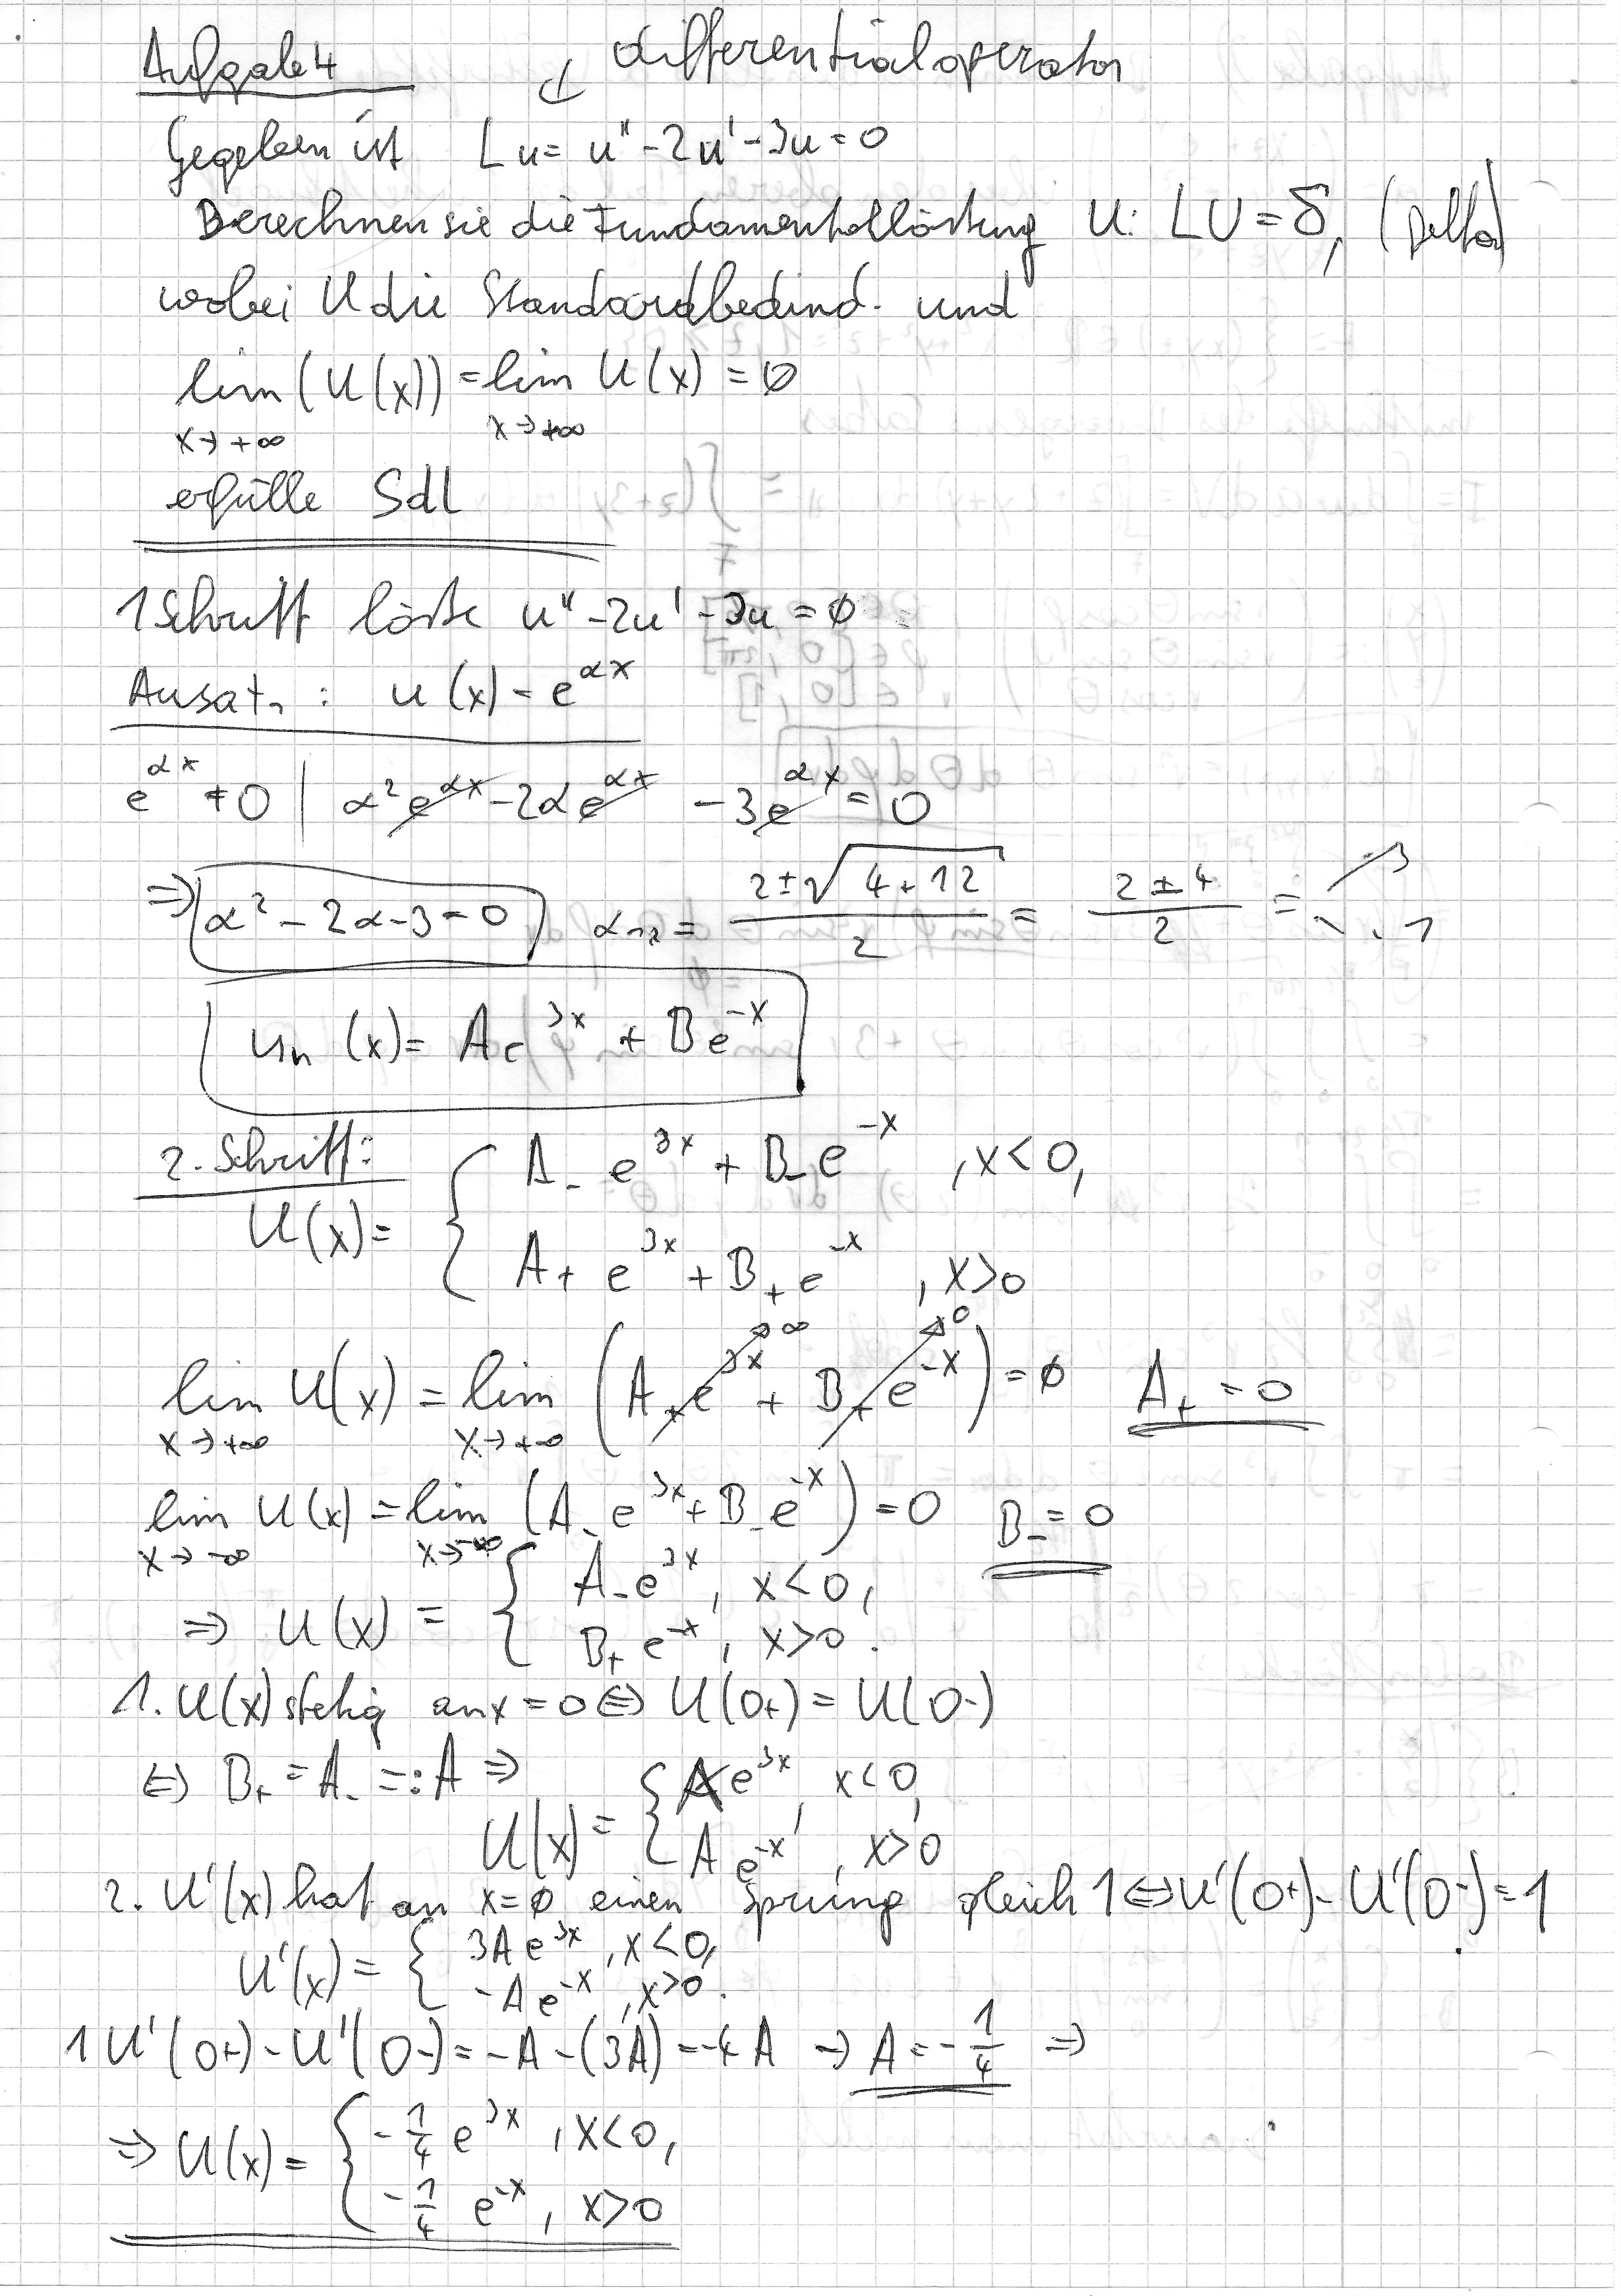 Aufgabe 4 differentialoperator
Gegeben ist Lu = u'' - 2u' - 3u = 0
Berechnen sie die Fundamentallösung U: LU = δ, (Delta)
wobei U die Standardbedind. und
lim (U(x)) = lim U(x) = 0
x→+∞ x→+∞
erfülle
1 Schritt löse u'' - 2u' - 3u = 0
Ansatz : u(x) = e^{αx}
e^{αx} ≠ 0 | α² e^{αx} - 2α e^{αx} - 3 e^{αx} = 0
⇒ α² - 2α - 3 = 0 α_{12} = (2 ± √(4+12))/2 = (2 ± 4)/2 = 3, -1
u_h (x) = A e^{3x} + B e^{-x}
2. Schritt:
U(x) = { A_- e^{3x} + B_- e^{-x} , x < 0,
A_+ e^{3x} + B_+ e^{-x} , x > 0
lim U(x) = lim (A_+ e^{3x} →∞ + B_+ e^{-x} →0) = 0 A_+ = 0
x→+∞ x→+∞
lim U(x) = lim (A_- e^{3x} + B_- e^{-x}) = 0 B_- = 0
x→-∞ x→-∞
⇒ U(x) = { A_- e^{3x} , x < 0,
B_+ e^{-x} , x > 0.
1. U(x) stetig an x = 0 ⇔ U(0+) = U(0-)
⇔ B_+ = A_- =: A ⇒
U(x) = { A e^{3x}, x < 0,
A e^{-x} , x > 0
2. U'(x) hat an x = 0 einen Sprung gleich 1 ⇔ U'(0+) - U'(0-) = 1
U'(x) = { 3A e^{3x} , x < 0,
-A e^{-x} , x > 0.
1 U'(0+) - U'(0-) = -A - (3A) = -4A → A = -1/4 ⇒
⇒ U(x) = { -1/4 e^{3x} , x < 0,
-1/4 e^{-x} , x > 0